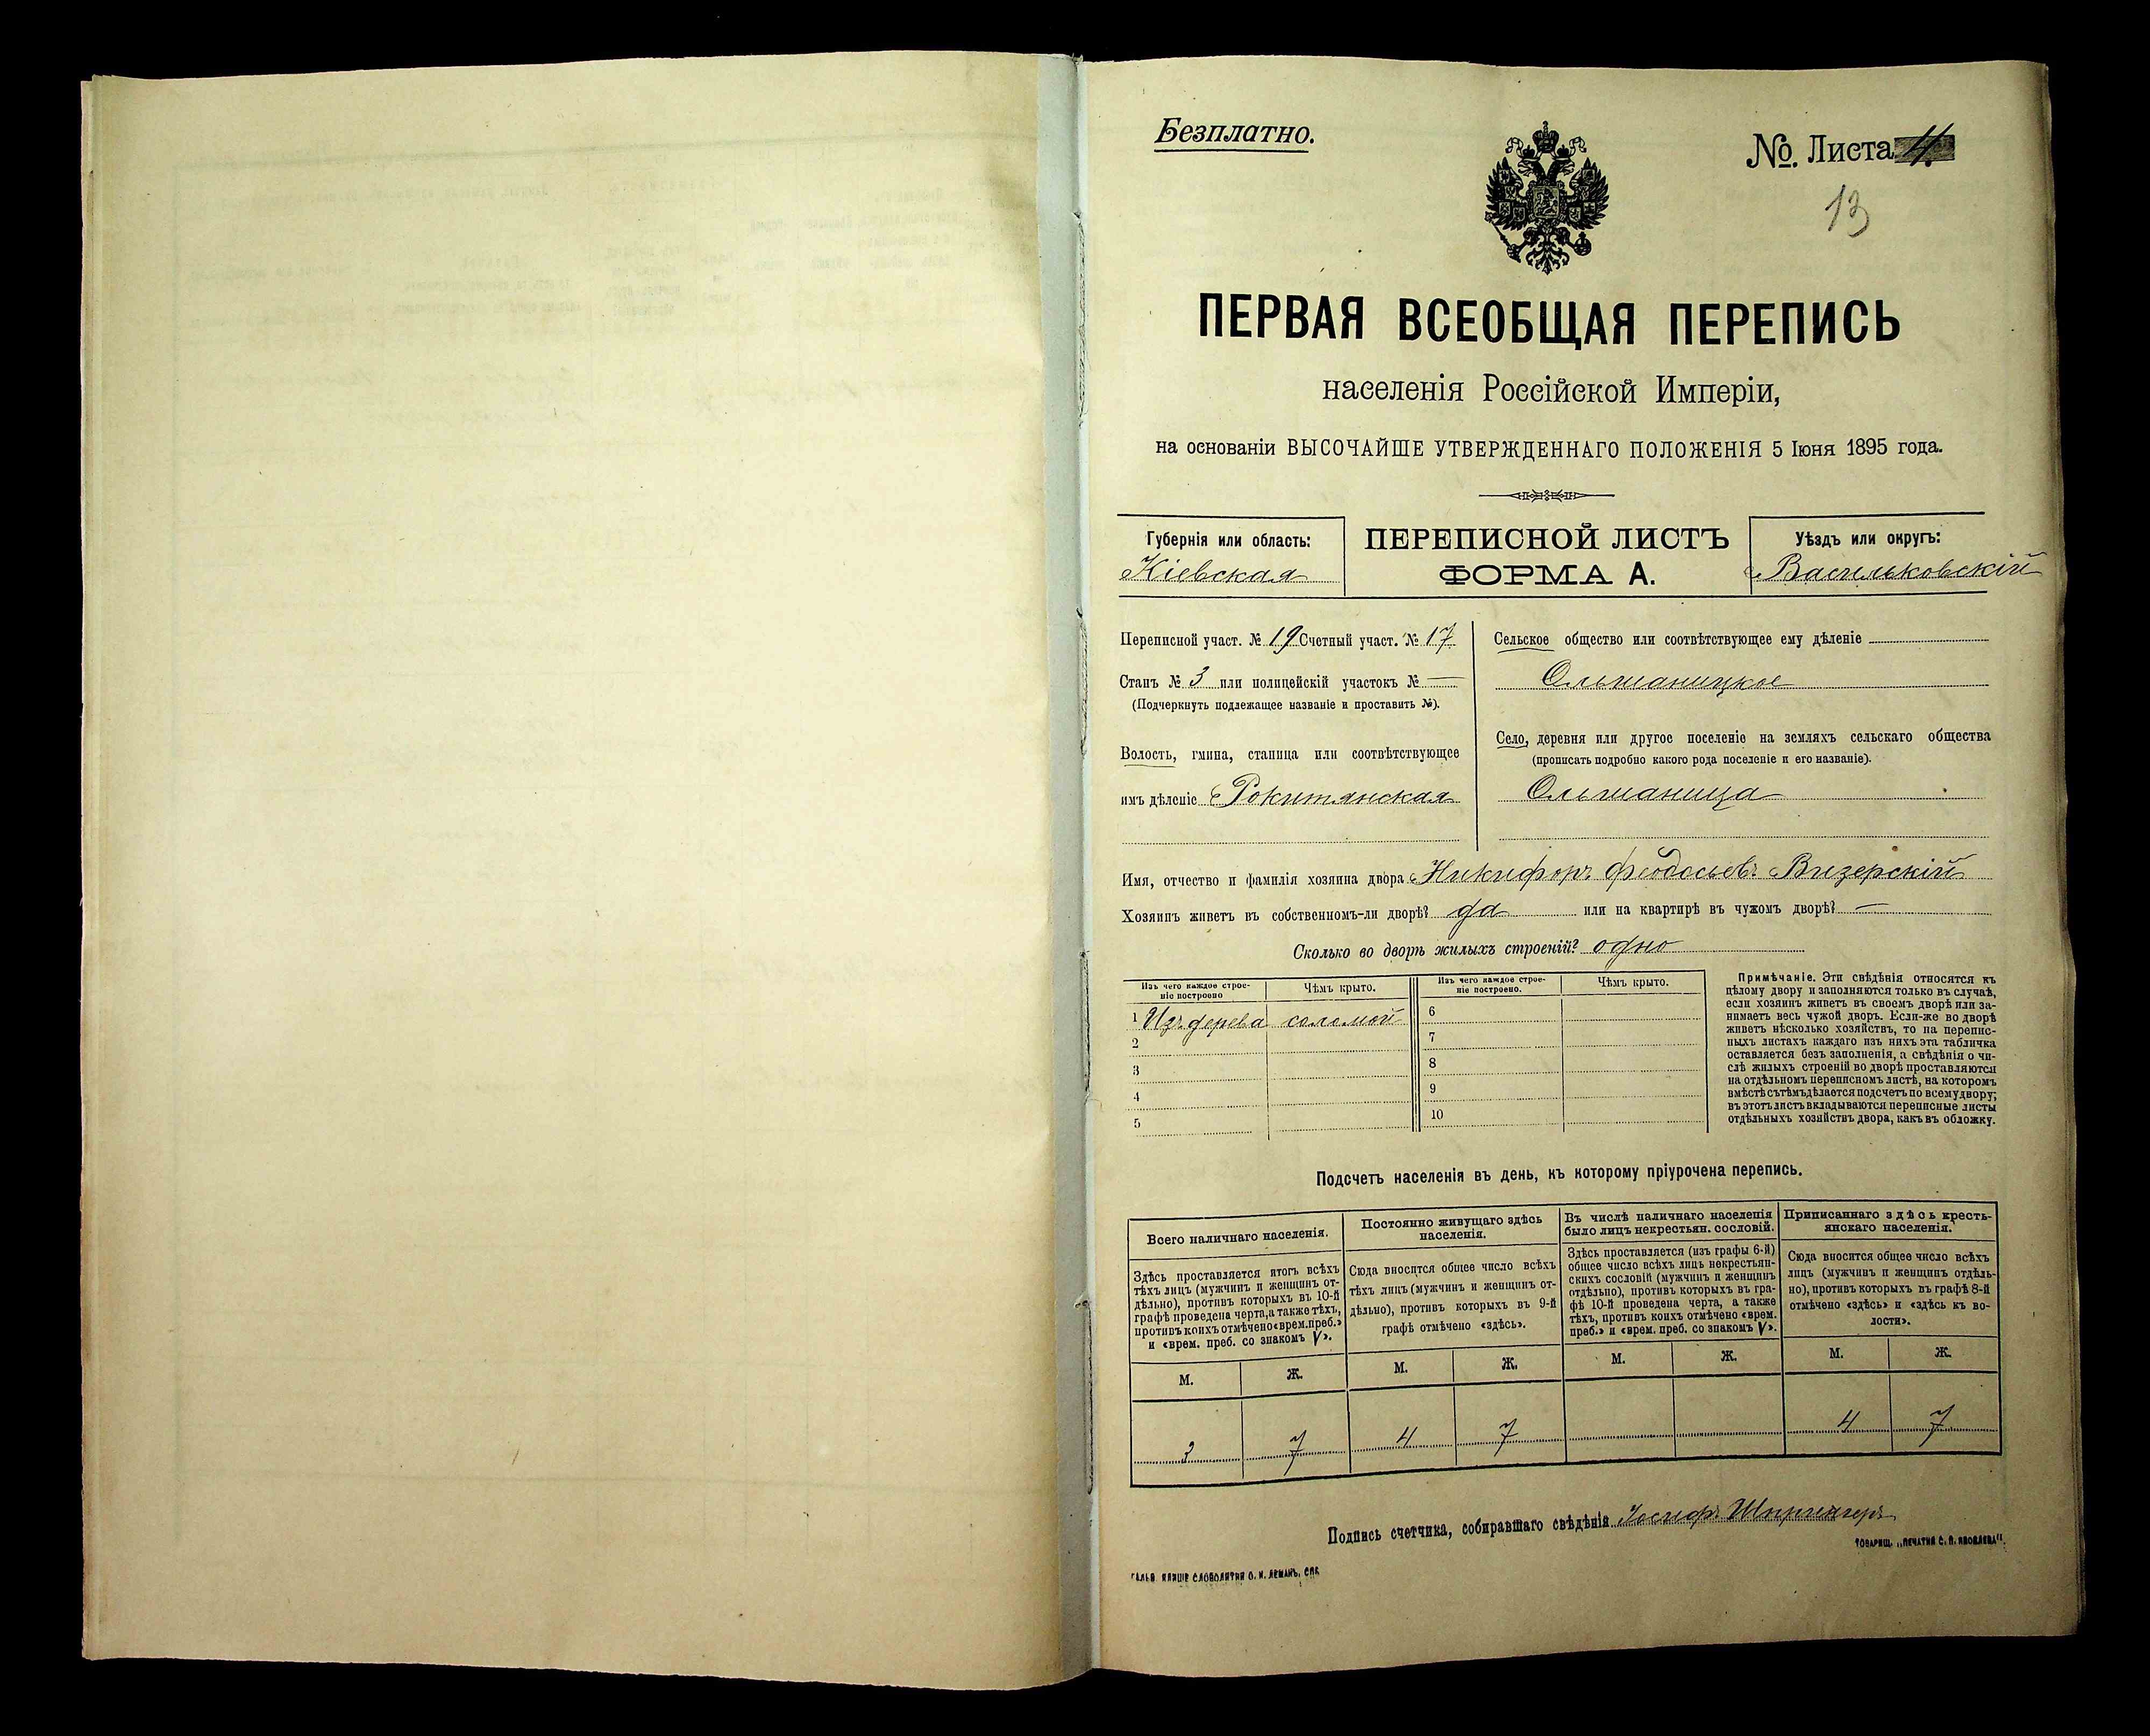 Безплатно.
№. Листа 4.
13
ПЕРВАЯ ВСЕОБЩАЯ ПЕРЕПИСЬ
населенія Россійской Имперіи,
на основаніи ВЫСОЧАЙШЕ УТВЕРЖДЕННАГО ПОЛОЖЕНІЯ 5 Іюня 1895 года.
Губернія или область:
Кіевская
ПЕРЕПИСНОЙ ЛИСТЪ
ФОРМА А.
Уѣздъ или округъ:
Васильковскій
Переписной участ. № 19 Счетный участ. № 17
Станъ № 3 или полицейскій участокъ № —
(Подчеркнуть подлежащее названіе и проставить №).
Волость, гмина, станица или соотвѣтствующее
имъ дѣленіе Рокитянская
Сельское общество или соотвѣтствующее ему дѣленіе
Ольшаницкое
Село, деревня или другое поселеніе на земляхъ сельскаго общества
(прописать подробно какого рода поселеніе и его названіе).
Ольшаница
Имя, отчество и фамилія хозяина двора Никифоръ Феодосьевъ Визерскій
Хозяинъ живетъ въ собственномъ-ли дворѣ? да или на квартирѣ въ чужомъ дворѣ? —
Сколько во дворѣ жилыхъ строеній? одно
Изъ чего каждое строе-
ніе построено
Чѣмъ крыто.
Изъ чего каждое строе-
ніе построено.
Чѣмъ крыто.
1 Изъ дерева соломой
2
3
4
5
6
7
8
9
10
Примѣчаніе. Эти свѣдѣнія относятся къ
цѣлому двору и заполняются только въ случаѣ,
если хозяинъ живетъ въ своемъ дворѣ или за-
нимаетъ весь чужой дворъ. Если-же во дворѣ
живетъ нѣсколько хозяйствъ, то на перепис-
ныхъ листахъ каждаго изъ нихъ эта табличка
оставляется безъ заполненія, а свѣдѣнія о чи-
слѣ жилыхъ строеній во дворѣ проставляются
на отдѣльномъ переписномъ листѣ, на которомъ
вмѣстѣ съ тѣмъ дѣлается подсчетъ по всему двору;
въ этотъ листъ вкладываются переписные листы
отдѣльныхъ хозяйствъ двора, какъ въ обложку.
Подсчетъ населенія въ день, къ которому пріурочена перепись.
Всего наличнаго населенія.
Здѣсь проставляется итогъ всѣхъ
тѣхъ лицъ (мужчинъ и женщинъ от-
дѣльно), противъ которыхъ въ 10-й
графѣ проведена черта, а также тѣхъ,
противъ коихъ отмѣчено «врем. преб.»
и «врем. преб. со знакомъ V».
Постоянно живущаго здѣсь
населенія.
Сюда вносится общее число всѣхъ
тѣхъ лицъ (мужчинъ и женщинъ от-
дѣльно), противъ которыхъ въ 9-й
графѣ отмѣчено «здѣсь».
Въ числѣ наличнаго населенія
было лицъ некрестьян. сословій.
Здѣсь проставляется (изъ графы 6-й)
общее число всѣхъ лицъ некрестьян-
скихъ сословій (мужчинъ и женщинъ
отдѣльно), противъ которыхъ въ гра-
фѣ 10-й проведена черта, а также
тѣхъ, противъ коихъ отмѣчено «врем.
преб.» и «врем. преб. со знакомъ V».
Приписаннаго здѣсь кресть-
янскаго населенія.
Сюда вносится общее число всѣхъ
лицъ (мужчинъ и женщинъ отдѣль-
но), противъ которыхъ въ графѣ 8-й
отмѣчено «здѣсь» и «здѣсь къ во-
лости».
М. Ж. М. Ж. М. Ж. М. Ж.
3 7 4 7 4 7
Подпись счетчика, собиравшаго свѣдѣнія Іосифъ
ТОВАРИЩ. „ПЕЧАТНЯ С. П. ЯКОВЛЕВА“.
ГАЛЬВ. КЛИШЕ СЛОВОЛИТНИ О. И. ЛЕМАНЪ, СПБ